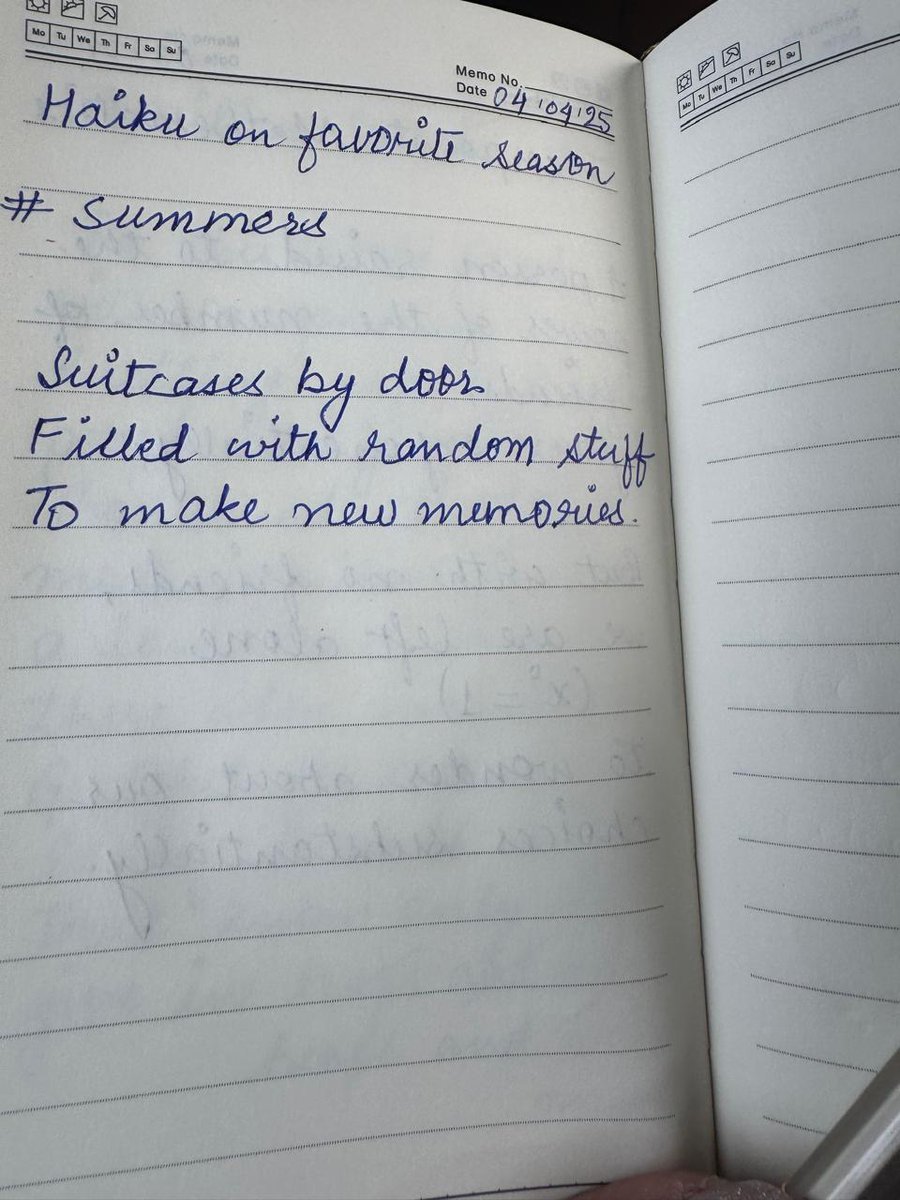 Mo Tu We Th Fr Sa Su
Memo No.
Date 04'04'25
Haiku on favorite season
# Summers
Suitcases by door
Filled with random stuff
To make new memories.
Mo Tu We Th Fr Sa Su